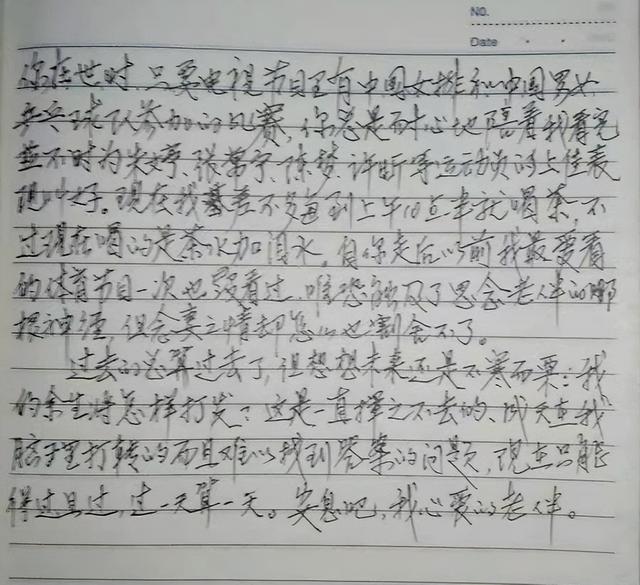 NO.
Date
你在世时，只要电视节目里有中国女排和中国男女
乒乓球队参加的比赛，你总是耐心地陪着我看完
并不时为朱婷、张常宁、陈梦、许昕等运动员的上佳表
现叫好。现在我差不多每到上午10点半就喝茶，不
过现在喝的是茶水加泪水。自你走后以前我最爱看
的体育节目一次也没看过，唯恐触及了思念老伴的哪
根神经，但念妻之情却怎么也割舍不了。
过去的总算过去了，但想想未来还是不寒而栗：我
的余生将怎样打发？这是一直挥之不去的、成天在我
脑子里打转的而且难以找到答案的问题，现在只能
得过且过，过一天算一天。安息吧，我心爱的老伴。